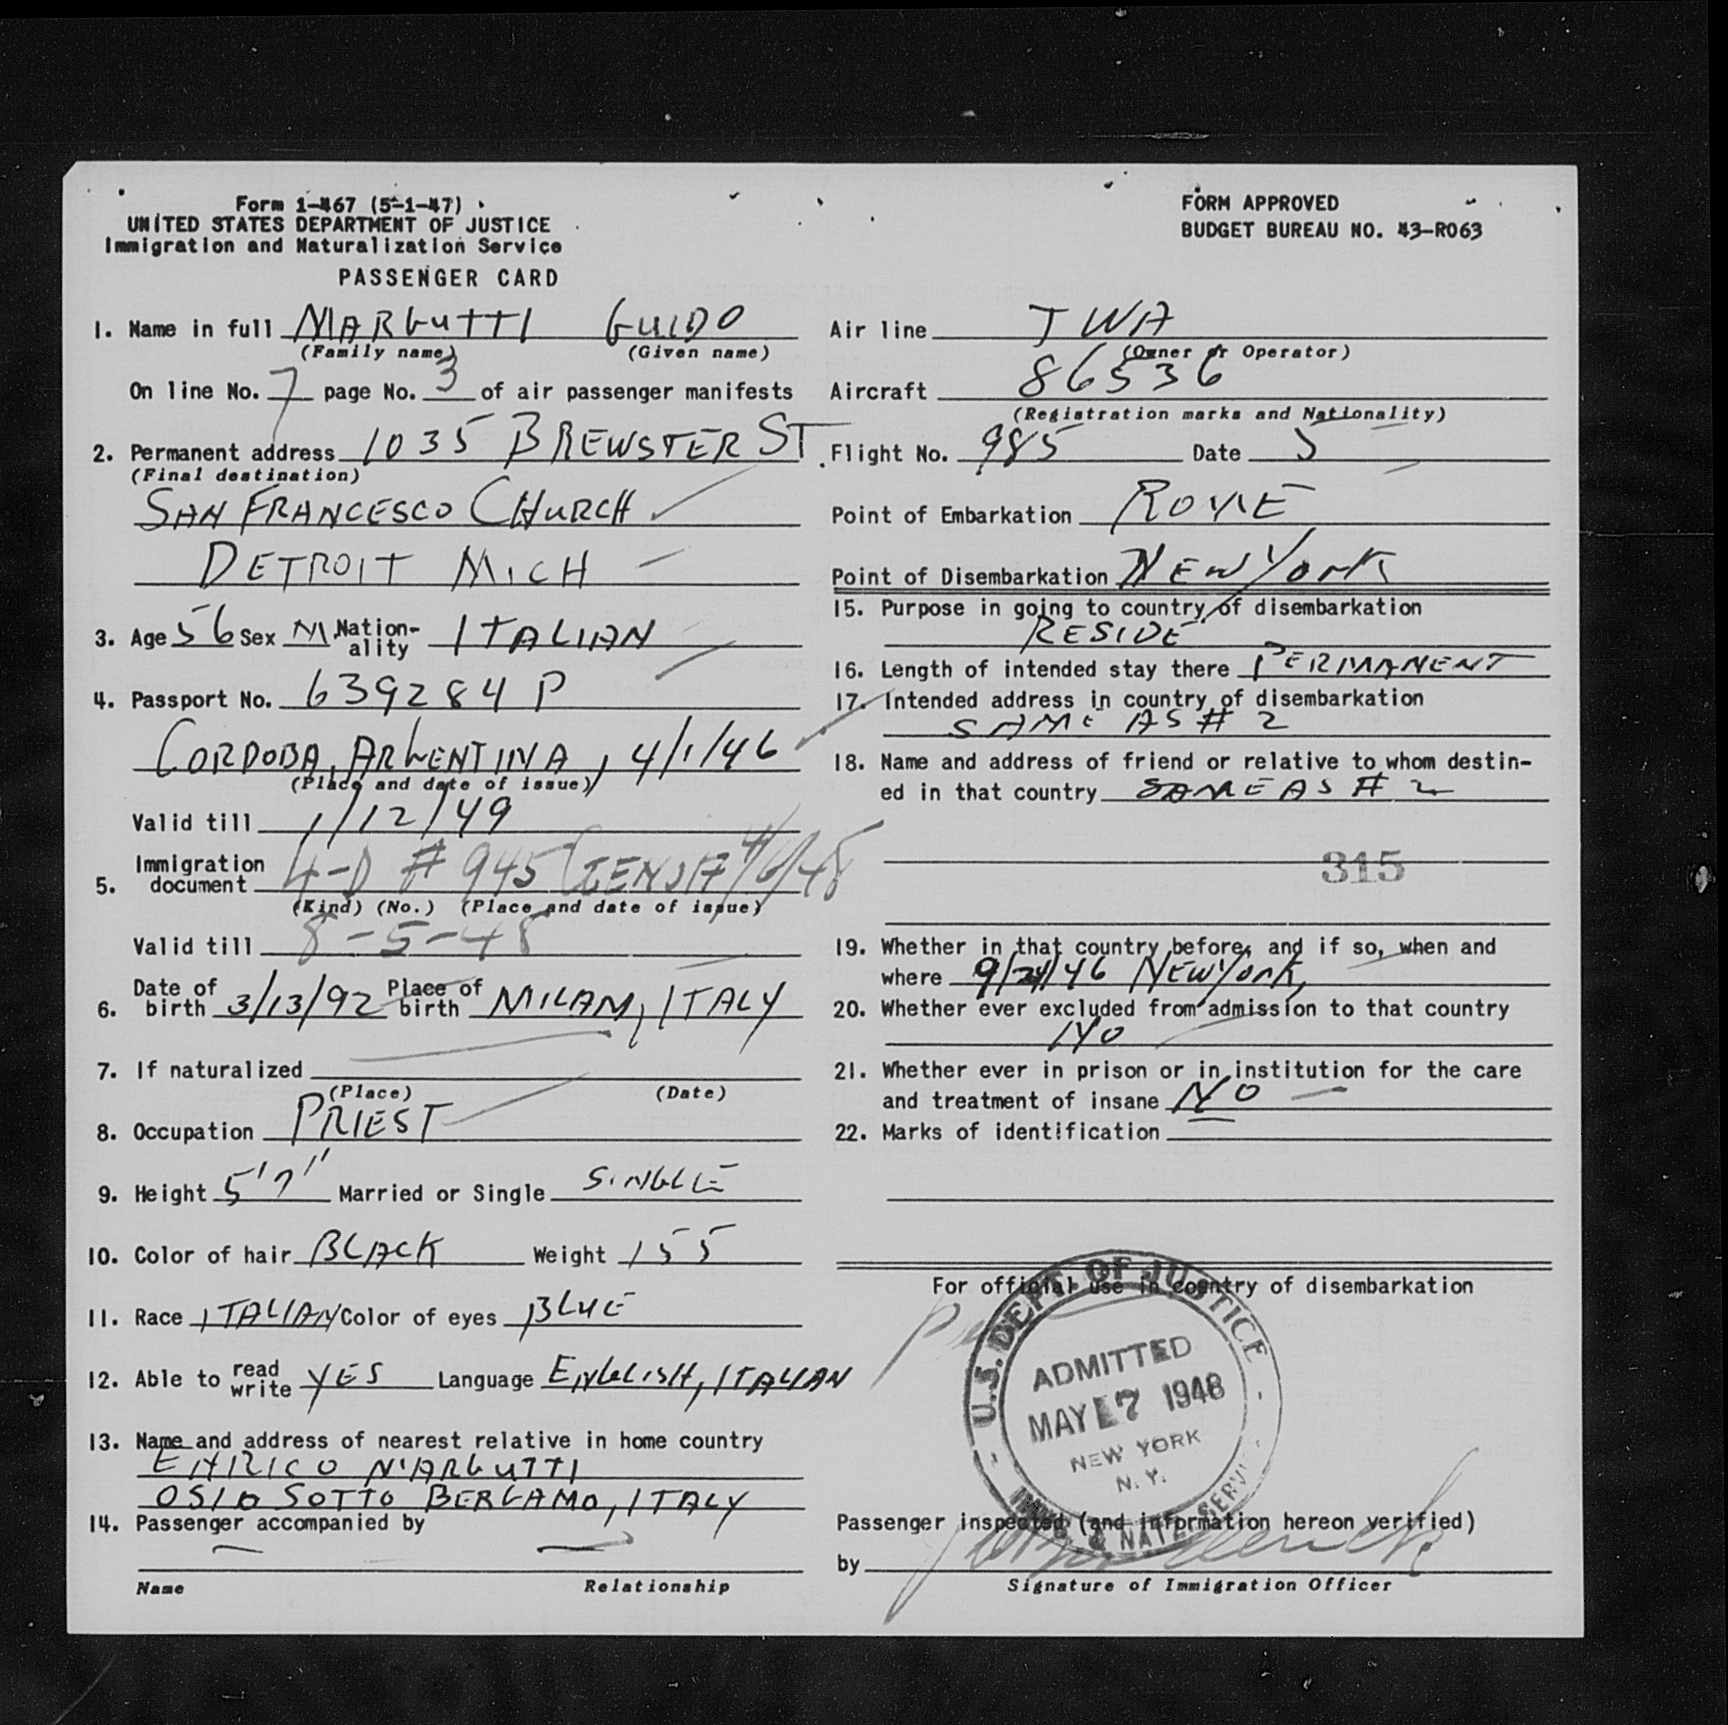 Form I-467 (5-1-47)
UNITED STATES DEPARTMENT OF JUSTICE
Immigration and Naturalization Service
PASSENGER CARD
FORM APPROVED
BUDGET BUREAU NO. 43-R063
1. Name in full MARGUTTI GUIDO
(Family name) (Given name)
On line No. 7 page No. 3 of air passenger manifests
2. Permanent address 1035 BREWSTER ST
(Final destination)
SAN FRANCESCO CHURCH
DETROIT MICH
3. Age 56 Sex M Nation-ality ITALIAN
4. Passport No. 639284 P
CORDOBA, ARGENTINA, 4/1/46
(Place and date of issue)
Valid till 1/12/49
5. Immigration document 4-D # 945 GENOA 4/6/48
(Kind) (No.) (Place and date of issue)
Valid till 8-5-48
6. Date of birth 3/13/92 Place of birth MILAN, ITALY
7. If naturalized
(Place) (Date)
8. Occupation PRIEST
9. Height 5'7" Married or Single SINGLE
10. Color of hair BLACK Weight 155
11. Race ITALIAN Color of eyes BLUE
12. Able to read write YES Language ENGLISH, ITALIAN
13. Name and address of nearest relative in home country
ENRICO MARGUTTI
OSIO SOTTO BERGAMO, ITALY
14. Passenger accompanied by
Name Relationship
Air line TWA
(Owner or Operator)
Aircraft 86536
(Registration marks and Nationality)
Flight No. 985 Date 5
Point of Embarkation ROME
Point of Disembarkation NEW YORK
15. Purpose in going to country of disembarkation
RESIDE
16. Length of intended stay there PERMANENT
17. Intended address in country of disembarkation
SAME AS # 2
18. Name and address of friend or relative to whom destin-
ed in that country SAME AS # 2
315
19. Whether in that country before, and if so, when and
where 9/24/46 NEW YORK,
20. Whether ever excluded from admission to that country
NO
21. Whether ever in prison or in institution for the care
and treatment of insane NO
22. Marks of identification
For official use in country of disembarkation
U.S. DEPT. OF JUSTICE
ADMITTED
MAY 17 1948
NEW YORK
N.Y.
IMMIG. & NATZ. SERV.
Passenger inspected (and information hereon verified)
by
Signature of Immigration Officer